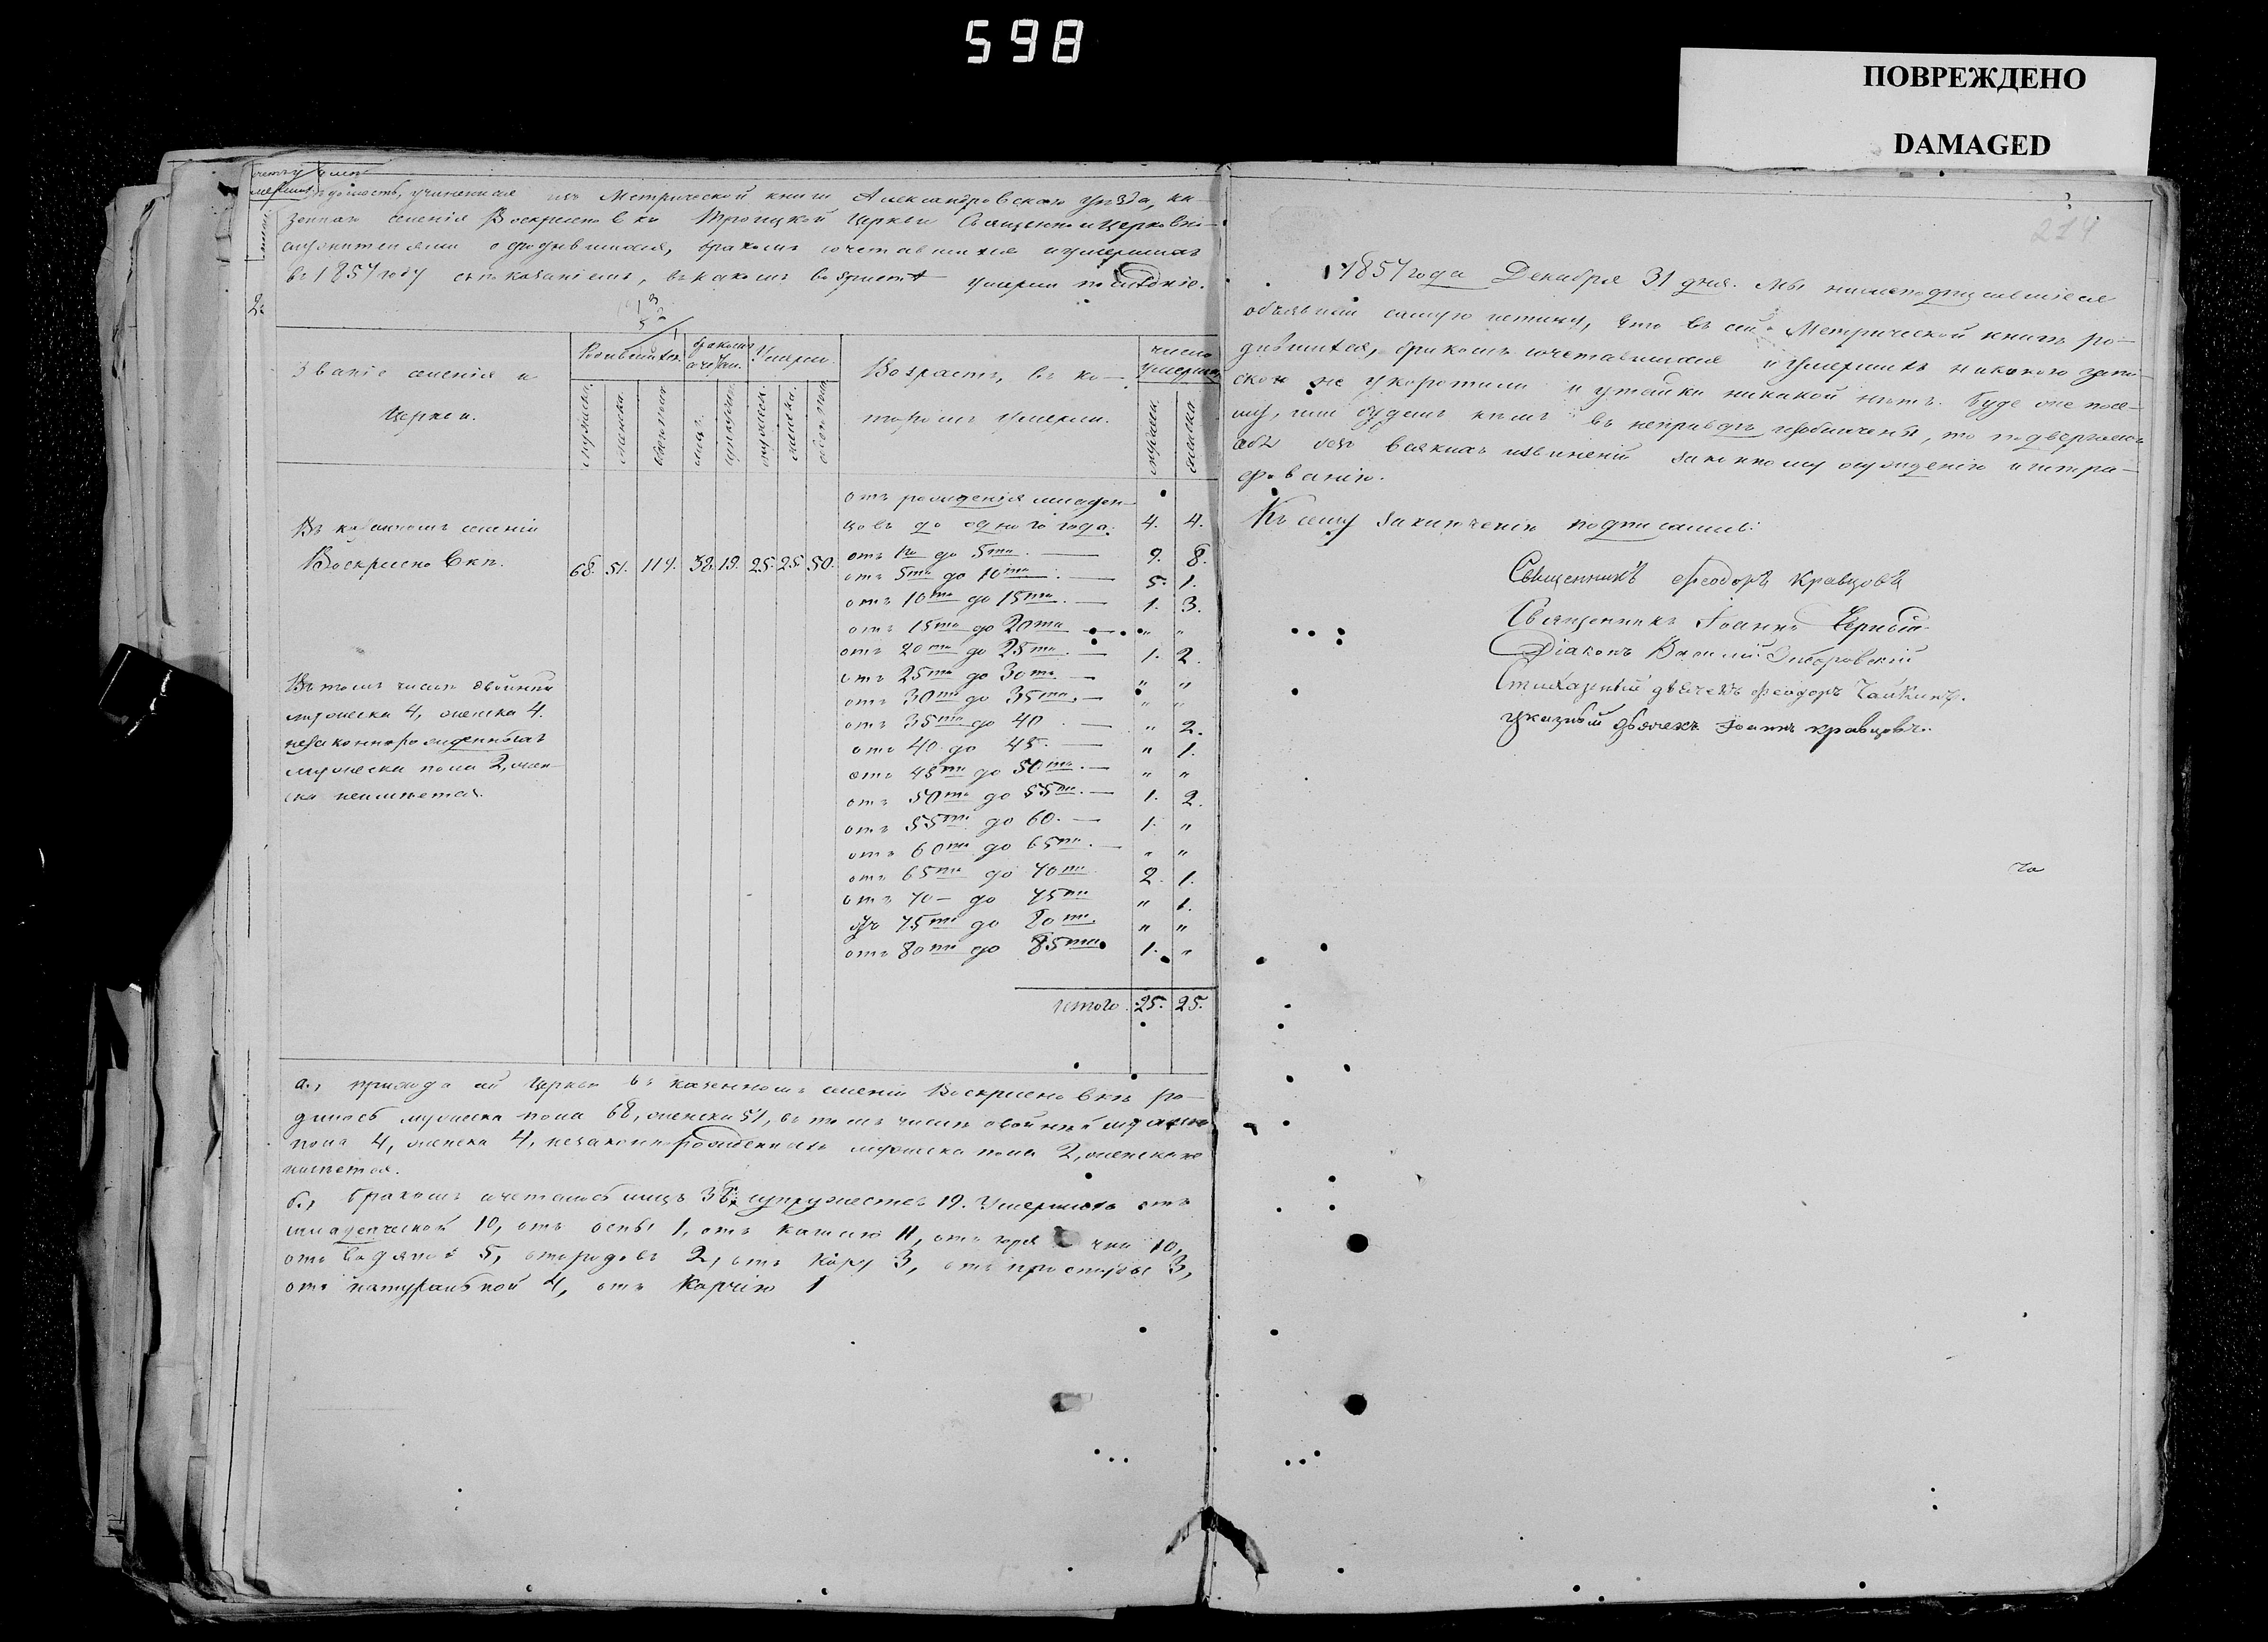 598
ПОВРЕЖДЕНО
DAMAGED
214
Ведомость, учиненная изъ Метрической книги Александровскаго уѣзда, ка-
зеннаго селенія Воскресеновки Троицкой Церкви Священно и Церковно-
служителями о родившихся, бракомъ сочетавшихся и умершихъ
въ 1857 году съ показаніемъ, въ какомъ возрастѣ умерли послѣдніе.
2.
Званіе селенія и
Церкви.
Родившихся.
мужеска.
женска.
обоего пола
бракомъ
сочетан.
лицъ.
супружес.
Умерли.
мужеска.
женска.
обоего пола
Возрастъ, въ ко-
торомъ умерли.
число
умерш.
мужеска.
женска.
Въ казенномъ селеніи
Воскресеновки.
68. 51. 119. 38. 19. 25. 25. 50.
отъ рожденія младен-
цовъ до одного года. 4. 4.
отъ 1го до 5ти. — 9. 8.
отъ 5ти до 10ти. — 5. 1.
отъ 10ти до 15ти. — 1. 3.
отъ 15ти до 20ти — " "
отъ 20ти до 25ти. — 1. 2.
отъ 25ти до 30ти — " "
отъ 30ти до 35ти. — " "
отъ 35ти до 40. — " 2.
отъ 40 до 45. — " 1.
отъ 45ти до 50ти. — " "
отъ 50ти до 55ти. — 1. 2.
отъ 55ти до 60. — 1. "
отъ 60ти до 65ти. — " "
отъ 65ти до 70ти 2. 1.
отъ 70 — до 75ти " 1.
отъ 75ти до 80ти. " "
отъ 80ти до 85ти. 1. "
Итого. 25. 25.
Въ томъ числѣ двойни
мужеска 4, женска 4.
незаконнорожденныхъ
мужеска пола 2, жен-
ска неимѣется.
а., прихода сей Церкви въ казенномъ селеніи Воскресеновкѣ ро-
дилось мужеска пола 68, женска 51, въ томъ числѣ двойней мужеска
пола 4, женска 4, незаконнорожденныхъ мужеска пола 2, женска не
имѣется.
б., Бракомъ сочеталось лицъ 38, супружествъ 19. Умершихъ отъ
младенческой 10, отъ оспы 1, отъ кашлю 11, отъ горячки 10,
отъ водяной 5, отъ родовъ 2, отъ кору 3, отъ простуды 3,
отъ натуральной 4, отъ Корчію 1
1857 года Декабря 31 дня. Мы нижеподписавшіеся
объявили самую истину, что въ сей Метрической книгѣ ро-
дившихся, бракомъ сочетавшихся и умершихъ никакого запи-
ской не укоротили и утайки никакой нѣтъ. Буде же посе-
му, или будемъ кѣмъ въ неправдѣ изобличены, то подвергаемъ
себя безъ всякихъ извиненій законному осужденію и штра-
фованію.
Къ сему заключенію подписались:
Священникъ Феодоръ Кравцовъ
Священникъ Іоаннъ Черный
Діаконъ Василій
Стихарный дьячекъ Феодоръ Чайкинъ.
Указный дьячекъ Іоаннъ Кравцовъ.